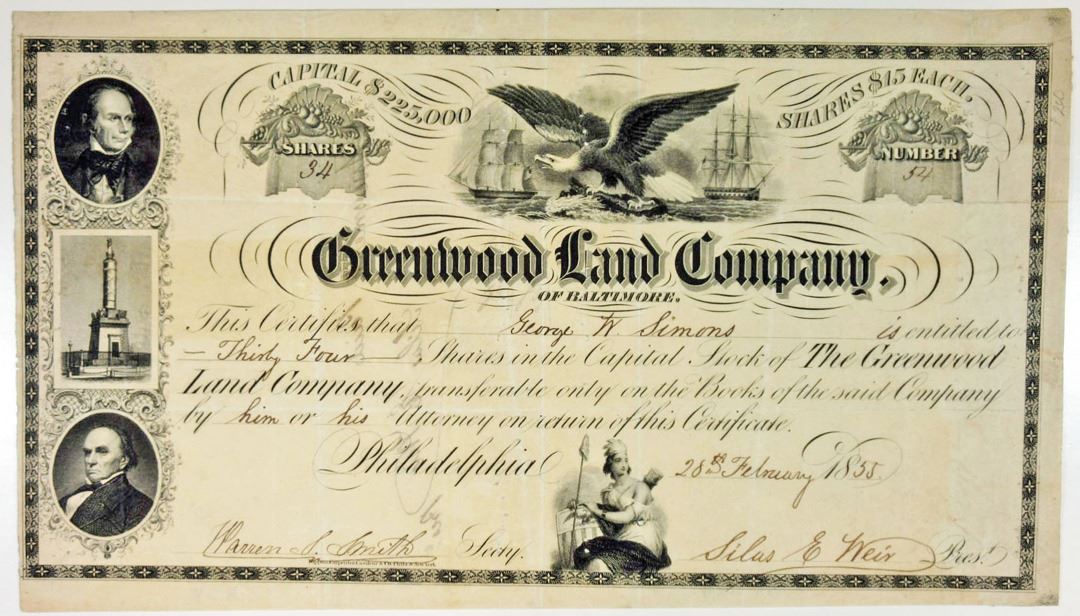 CAPITAL $225,000
SHARES $15 EACH.
SHARES
34
NUMBER
54
Greenwood Land Company,
OF BALTIMORE.
This Certifies that George W Simons is entitled to
— Thirty Four — Shares in the Capital Stock of The Greenwood
Land Company, transferable only on the Books of the said Company
by him or his Attorney on return of this Certificate.
Philadelphia 28th February 1855.
Warren S. Smith Secty.
Silas E Weir Prest.